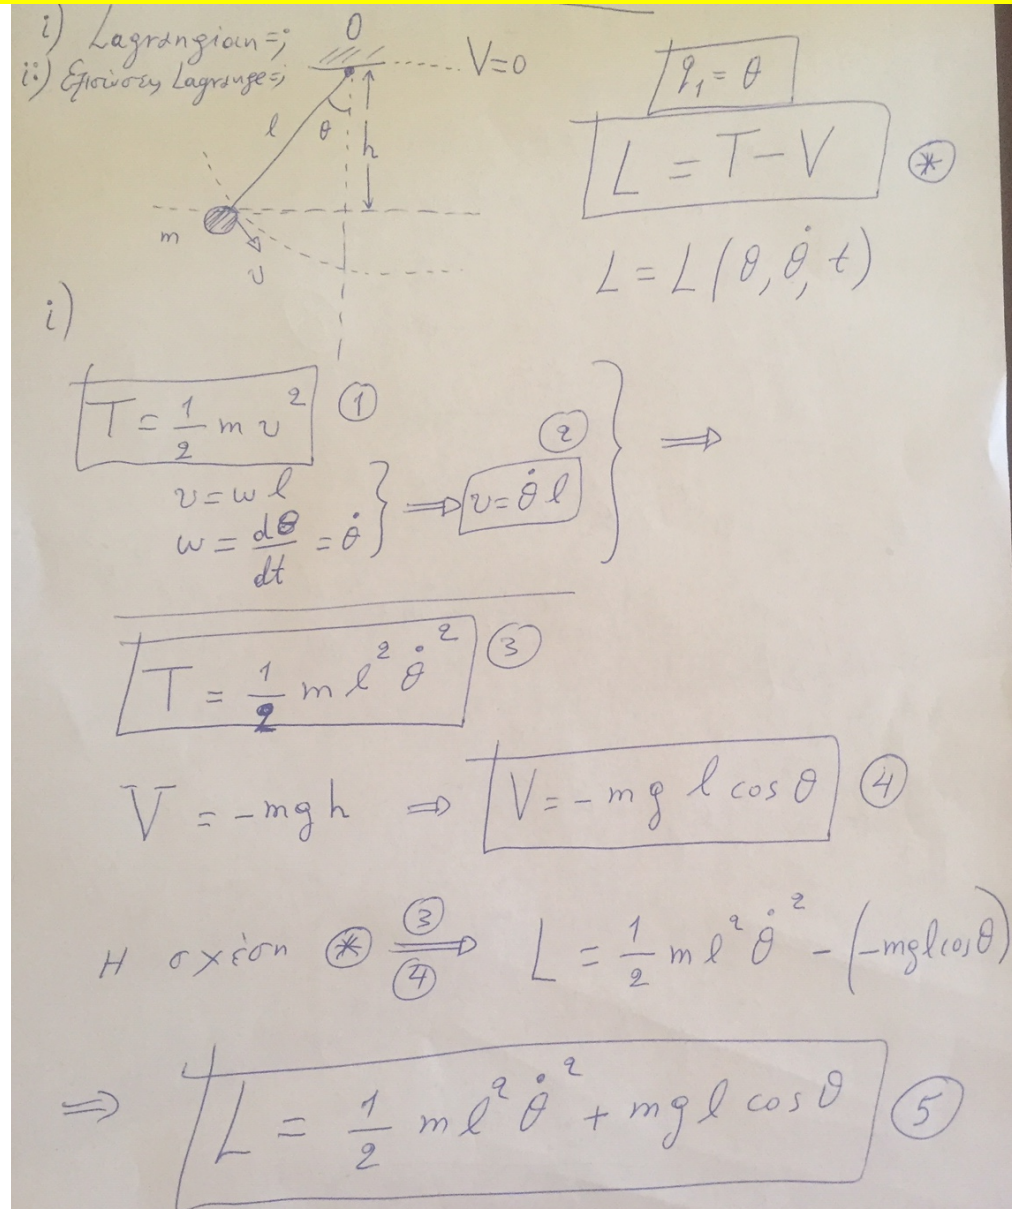 i) Lagrangian=;
ii) Εξισώσεις Lagrange=;
O
V=0
l
θ
h
m
υ
q₁ = θ
L = T − V (*)
L = L(θ, θ̇, t)
i)
T = 1/2 m υ² (1)
υ = ω l
ω = dθ/dt = θ̇
} ⇒ υ = θ̇ l (2) } ⇒
T = 1/2 m l² θ̇² (3)
V = −mgh ⇒ V = −mg l cosθ (4)
Η σχέση (*) (3) ⇒ (4) L = 1/2 m l² θ̇² − (−mglcosθ)
⇒ L = 1/2 m l² θ̇² + mgl cosθ (5)